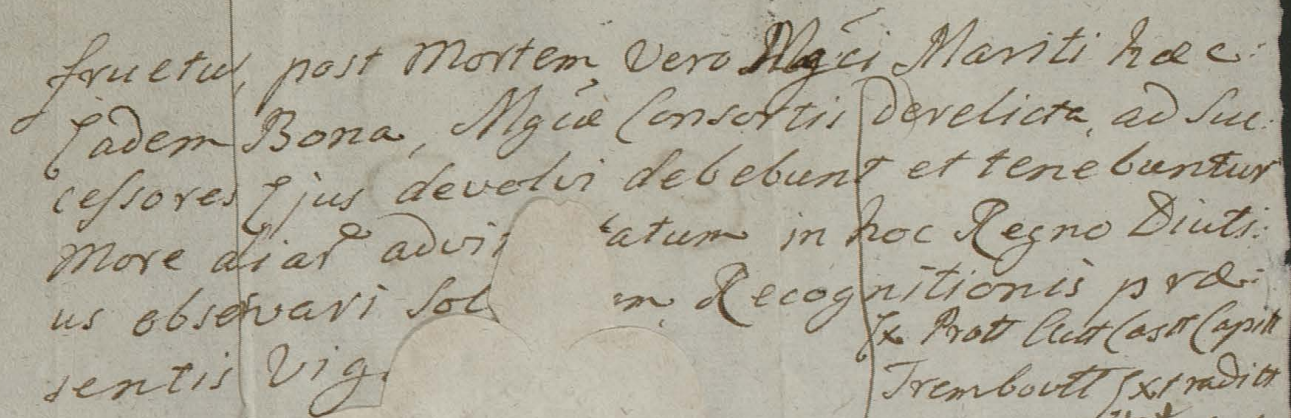 fructus, post Mortem vero Mgci Mariti hæc
Eadem Bona, Mgcæ Consortis derelicta, ad Suc:
cessores Ejus devolvi debebunt et tenebuntur
More aliar advi tatum in hoc Regno Diuti:
us observari Sol m, Recognitionis præ:
sentis Vig
Ex Prott Castt Capitt
Trembovltt Extraditt